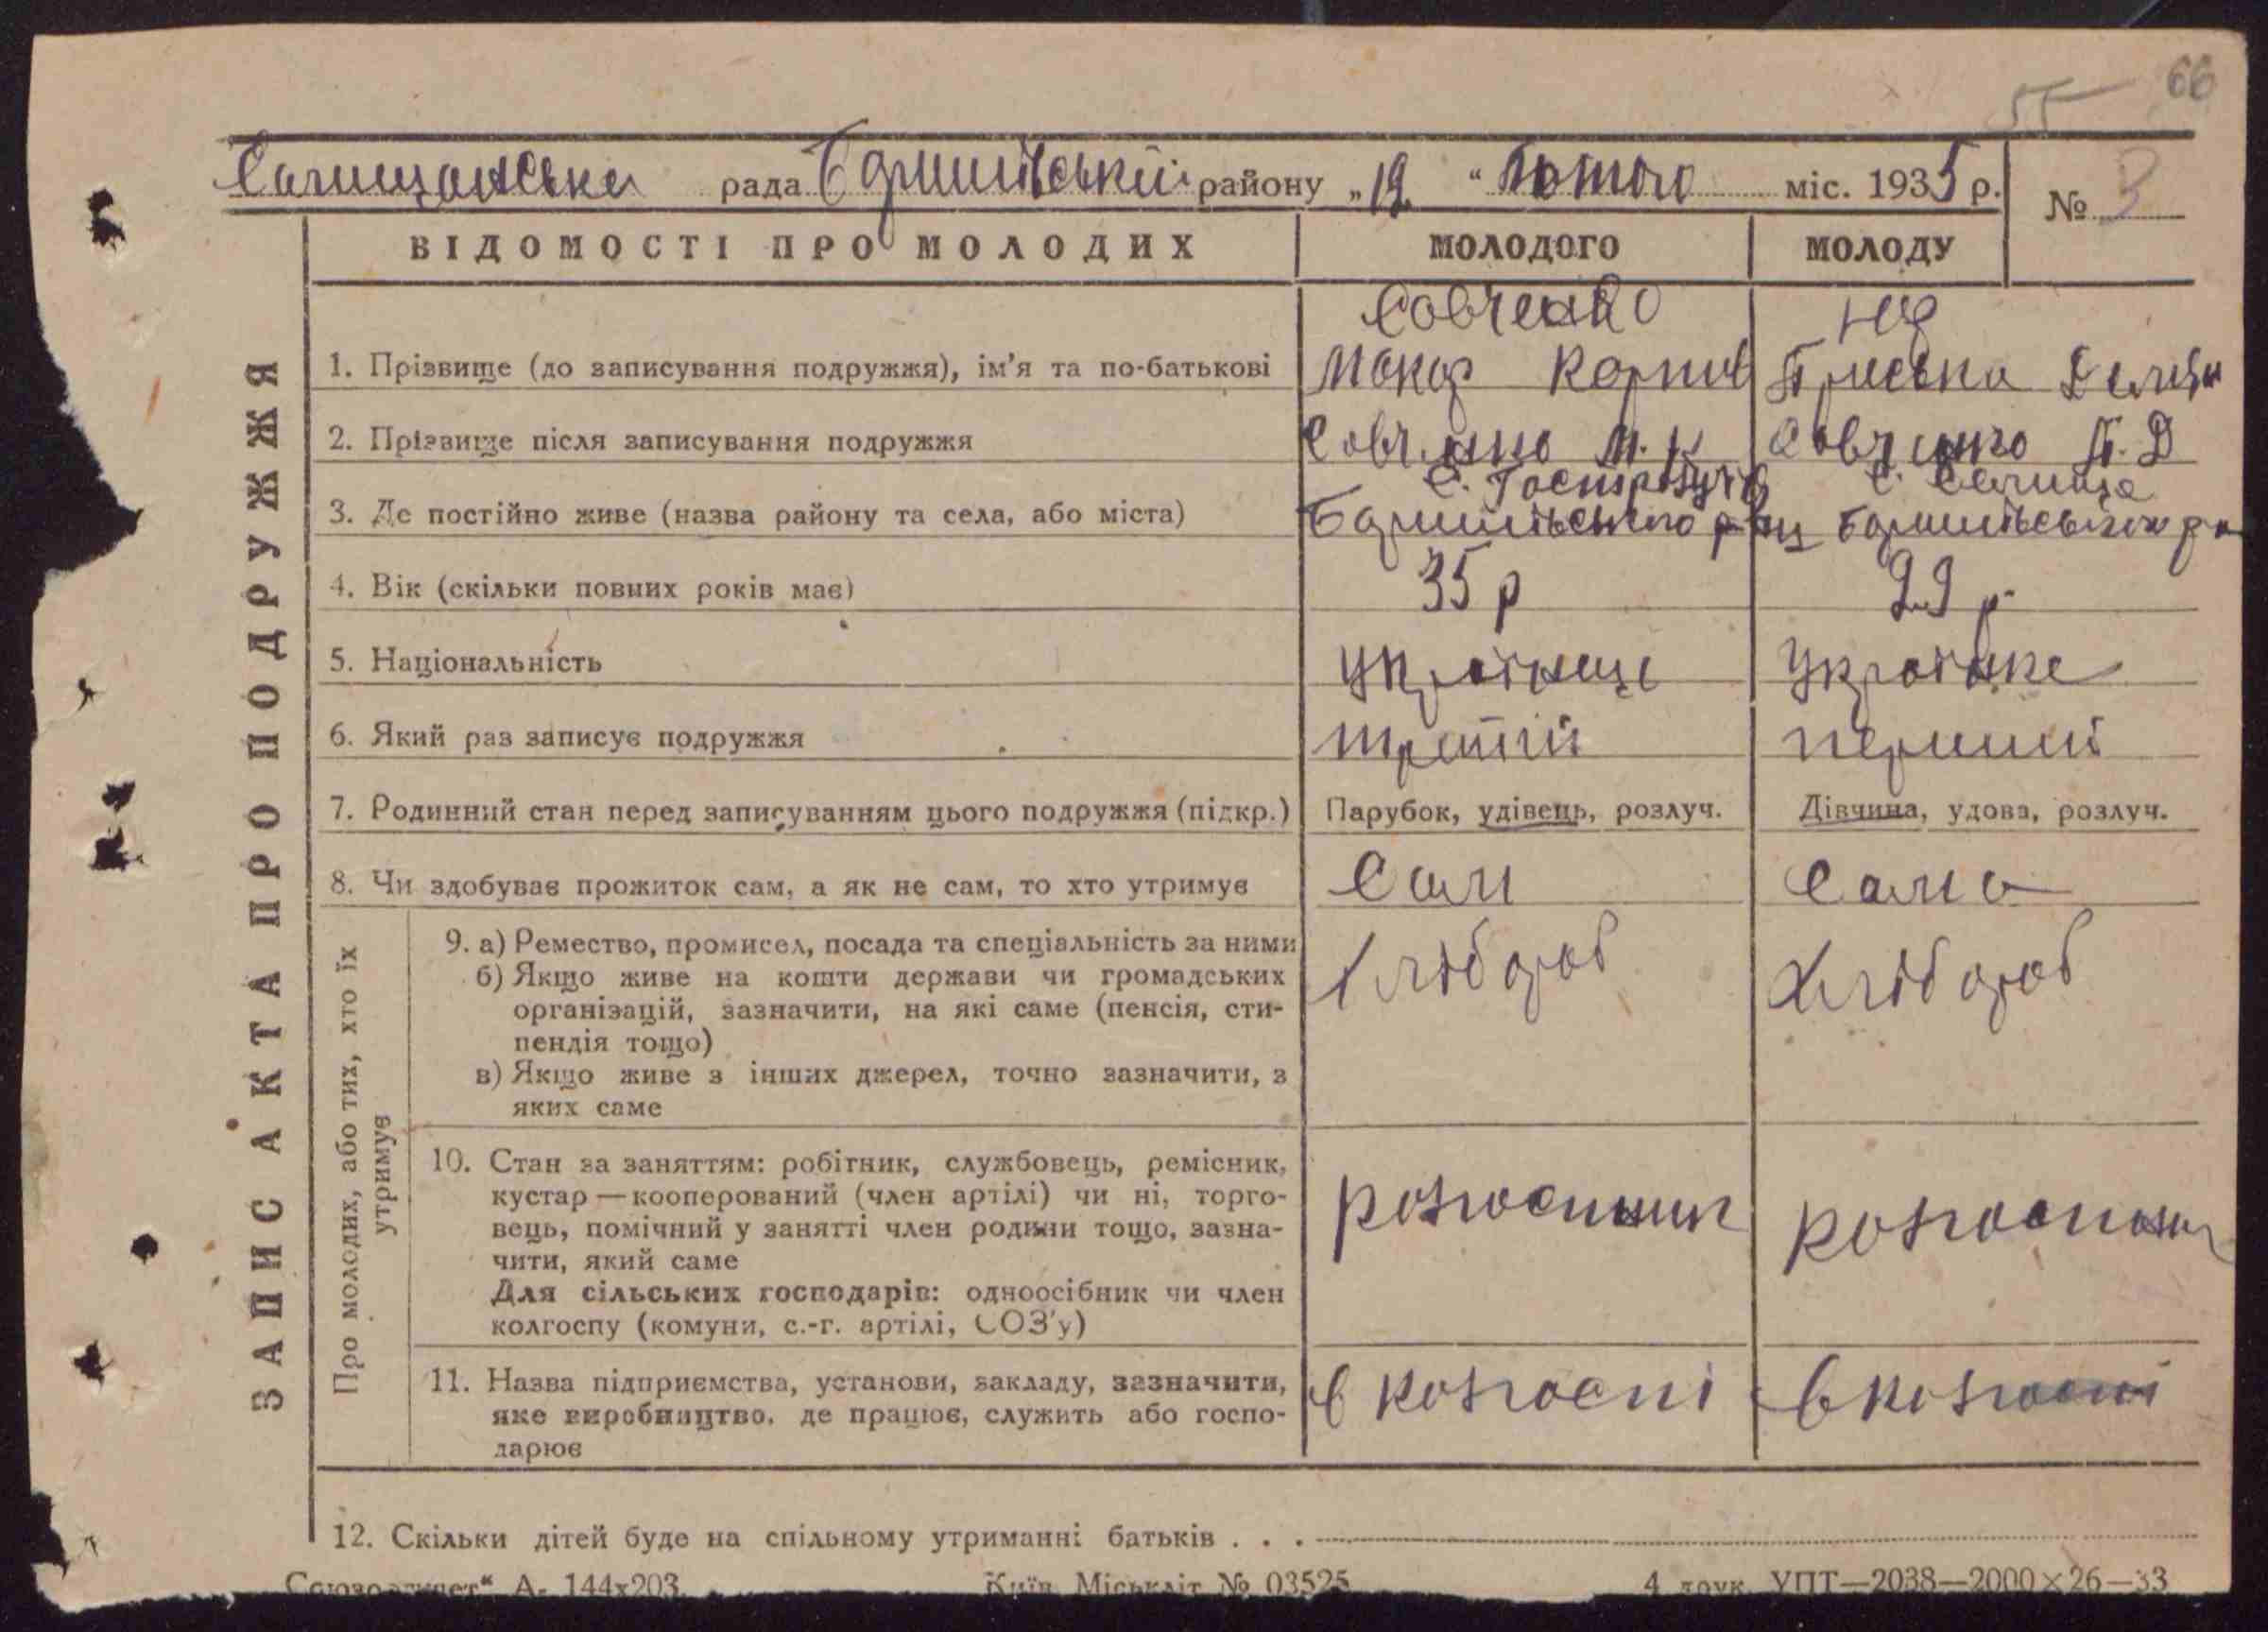 66
55
Селищанська рада Баришівській району „19 “ Лютого міс. 1935 р.
№ 3
ВІДОМОСТІ ПРО МОЛОДИХ МОЛОДОГО МОЛОДУ
ЗАПИС АКТА ПРО ПОДРУЖЖЯ
Савченко
1. Прізвище (до записування подружжя), ім'я та по-батькові Макар Карпов Пріська
2. Прізвище після записування подружжя Савченко М. К Савченко П. Д
с. Селище
3. Де постійно живе (назва району та села, або міста) Баришівського р-ну Баришівського р-н
4. Вік (скільки повних років має) 35 р 29 р.
5. Національність Українець Українка
6. Який раз записує подружжя третій перший
7. Родинний стан перед записуванням цього подружжя (підкр.) Парубок, удівець, розлуч. Дівчина, удова, розлуч.
8. Чи здобуває прожиток сам, а як не сам, то хто утримує Сам Сама
Про молодих, або тих, хто їх утримує
9. а) Ремество, промисел, посада та спеціальність за ними Хлібороб Хлібороб
б) Якщо живе на кошти держави чи громадських
організацій, зазначити, на які саме (пенсія, сти-
пендія тощо)
в) Якщо живе з інших джерел, точно зазначити, з
яких саме
10. Стан за заняттям: робітник, службовець, ремісник,
кустар — кооперований (член артілі) чи ні, торго- колгоспник колгоспник
вець, помічний у занятті член родини тощо, зазна-
чити, який саме
Для сільських господарів: одноосібник чи член
колгоспу (комуни, с.-г. артілі, СОЗ'у)
11. Назва підприємства, установи, закладу, зазначити, в колгоспі в колгоспі
яке виробництво, де працює, служить або госпо-
дарює
12. Скільки дітей буде на спільному утриманні батьків . . .
А- 144х203. Київ Міськліт № 03525 4 друк. УПТ—2038—2000×26—33